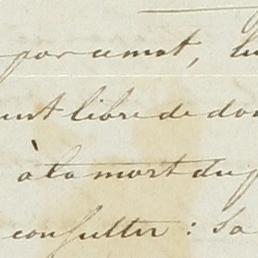 par ce mot, lu
ent libre de do
à la mort du p
consulter : Sa